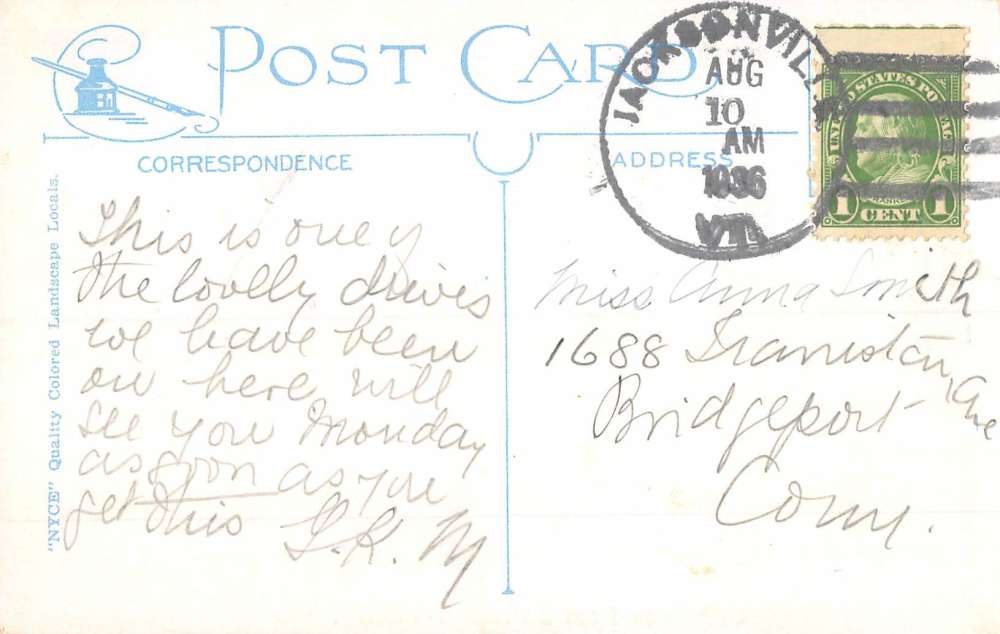 POST CARD
CORRESPONDENCE
ADDRESS
JACKSONVILLE
AUG
10
AM
1936
VT.
UNITED STATES POSTAGE
FRANKLIN
1 CENT 1
"NYCE" Quality Colored Landscape Locals.
This is one of
the lovely drives
we have been
on here will
see you Monday
as soon as you
get this
L.K.M
Miss Anna Smith
1688 Iranistan Ave
Bridgeport
Conn.